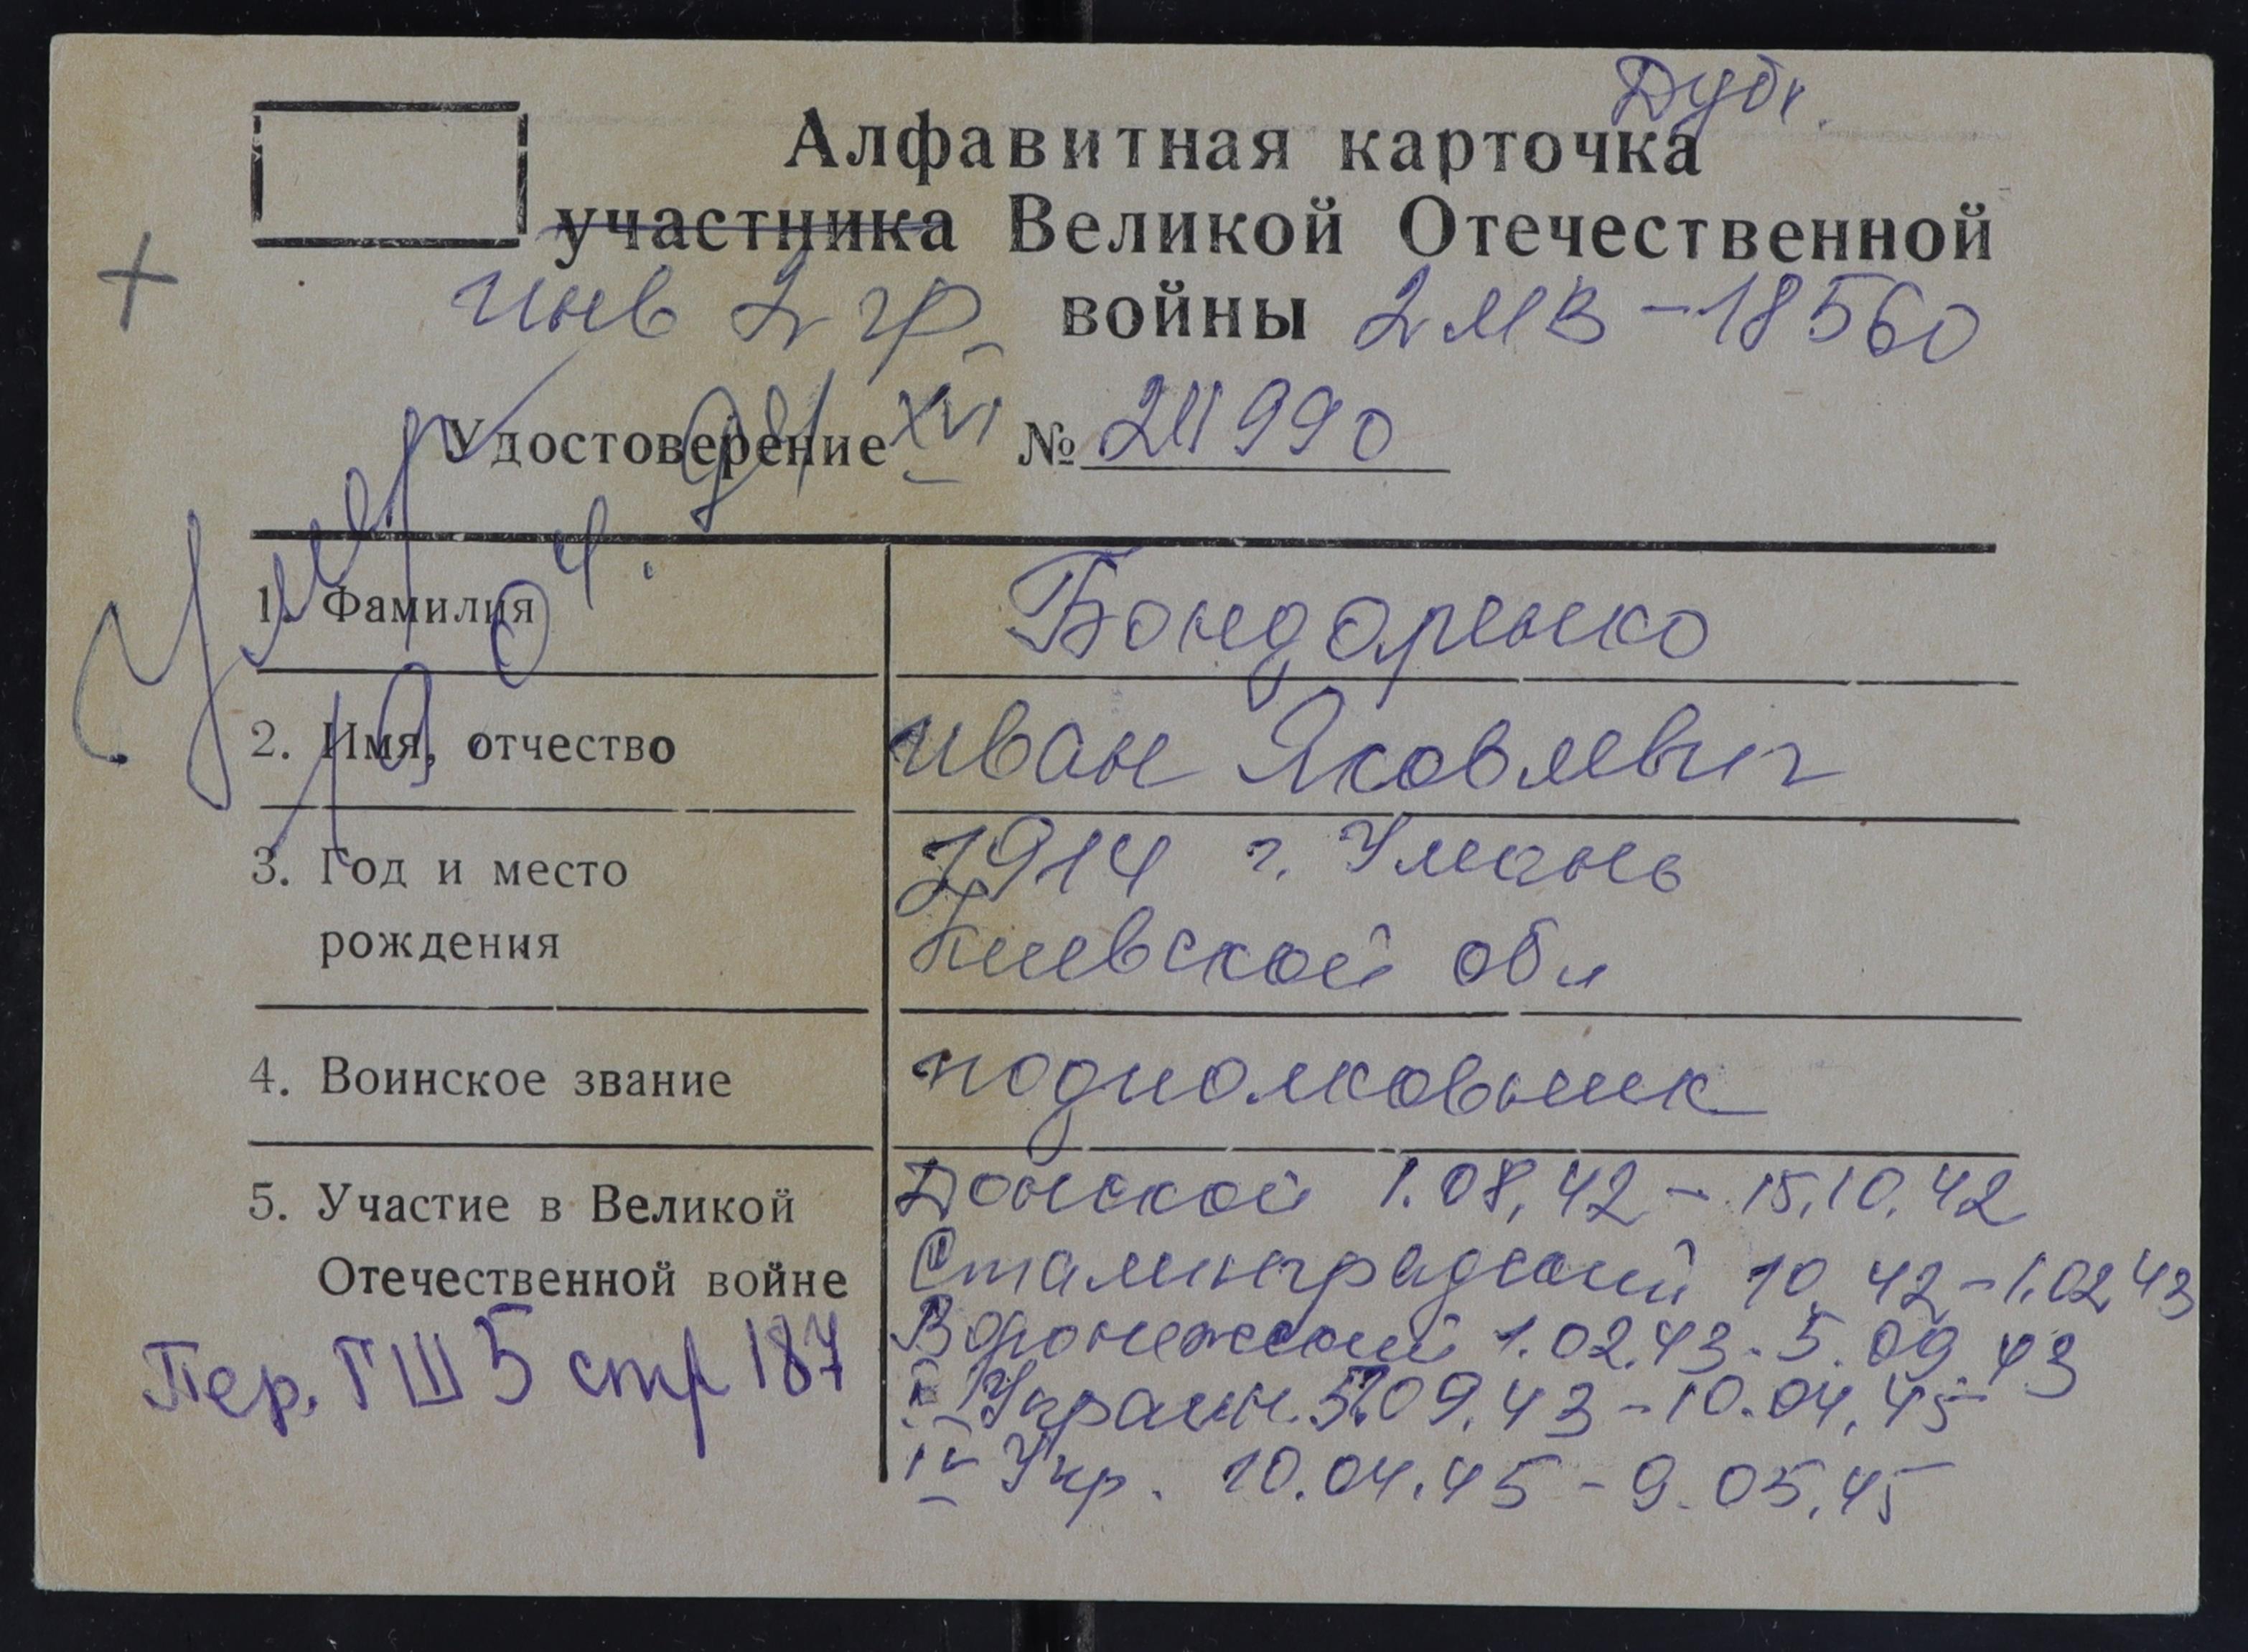 Дубл.
Алфавитная карточка
участника Великой Отечественной
инв 2 гр. войны 2 МВ - 18560
Удостоверение № 211990
Умер
1. Фамилия Бондаренко
2. Имя, отчество Иван Яковлевич
3. Год и место 1914 г. Умань
рождения Киевской обл
4. Воинское звание подполковник
5. Участие в Великой Донской 1.08.42 - 15.10.42
Отечественной войне Сталинградский 10 42 - 1.02.43
Воронежский 1.02.43 - 5.09.43
Пер. ГШ 5 стр 187 I Украин. 5.09.43 - 10.04.45
IV Укр. 10.04.45 - 9.05.45